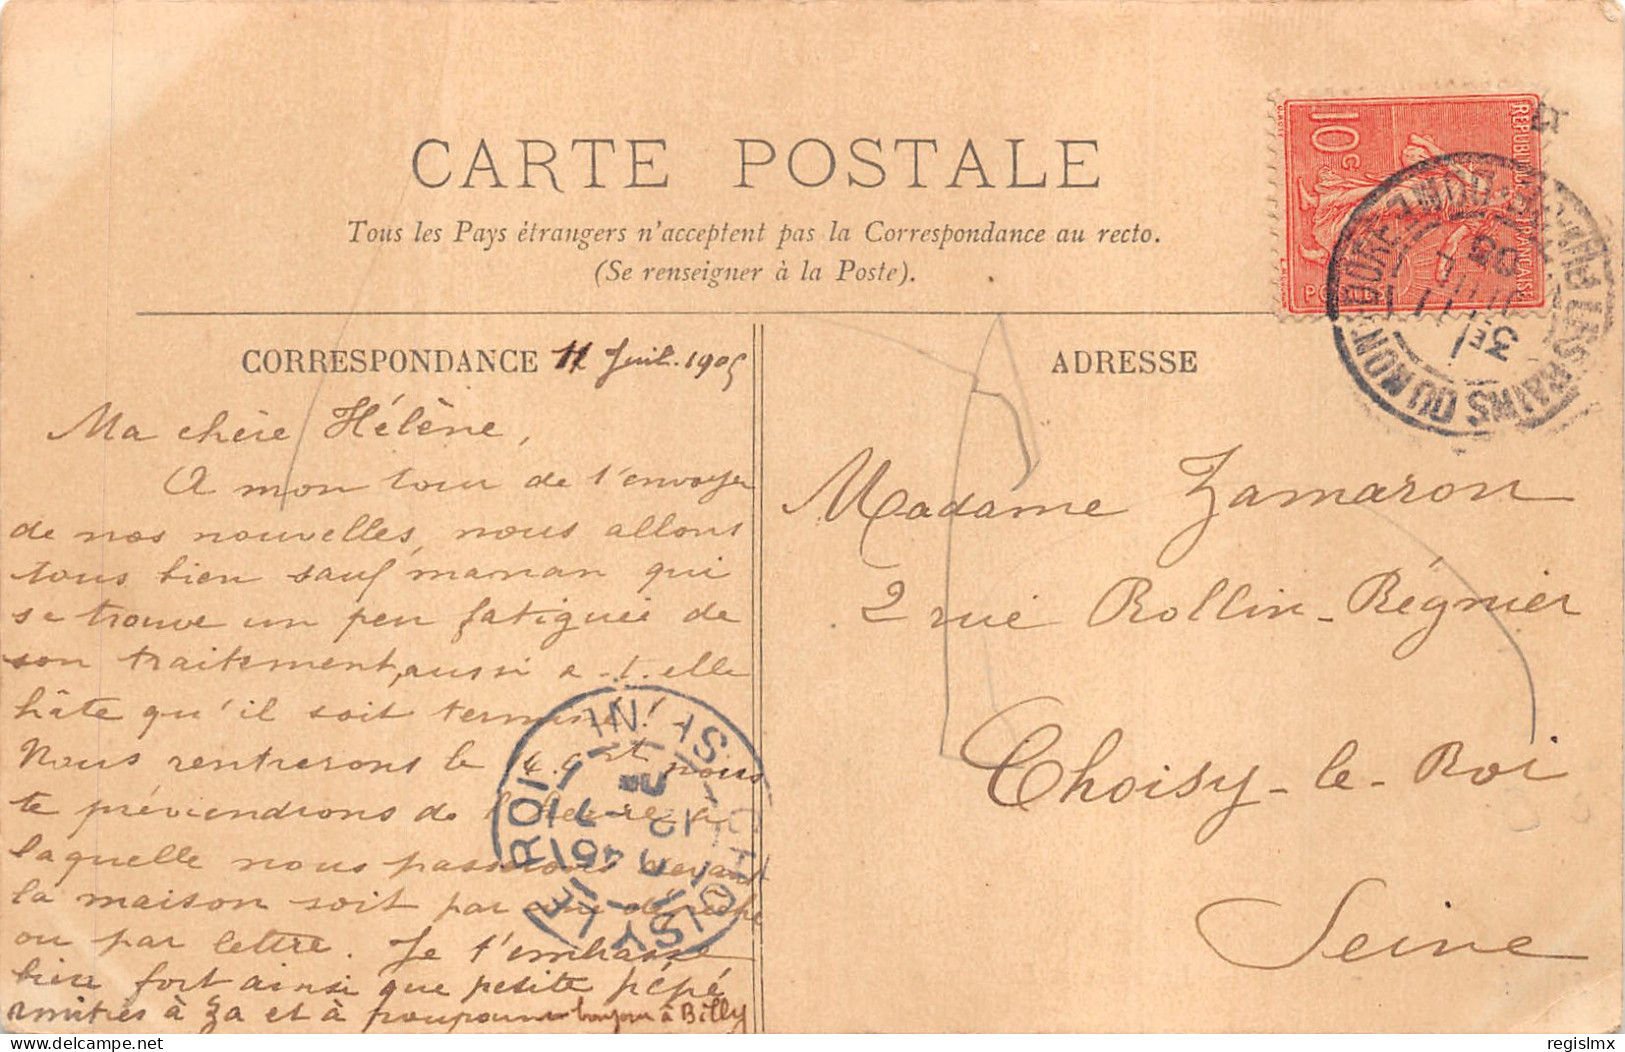 CARTE POSTALE
Tous les Pays étrangers n'acceptent pas la Correspondance au recto.
(Se renseigner à la Poste).
REPUBLIQUE FRANÇAISE
10 C
3E
11
05
CORRESPONDANCE 11 Juil. 1905
Ma chère Hélène,
A mon tour de t'envoyer
de nos nouvelles, nous allons
tous bien sauf maman qui
se trouve un peu fatiguée de
son traitement, aussi a-t-elle
hâte qu'il soit terminé!
Nous rentrerons le nous
te préviendrons de l'heure à
laquelle nous passerons devant
la maison soit par une dépêche
ou par lettre. Je t'embrasse
bien fort ainsi que petite pépé
amitiés à Za et à bonjour à Billy
ADRESSE
Madame Zamaron
2 rue Rollin-Régnier
Choisy-le-Roi
Seine
CHOISY-LE-ROI
regislmx
delcampe.net